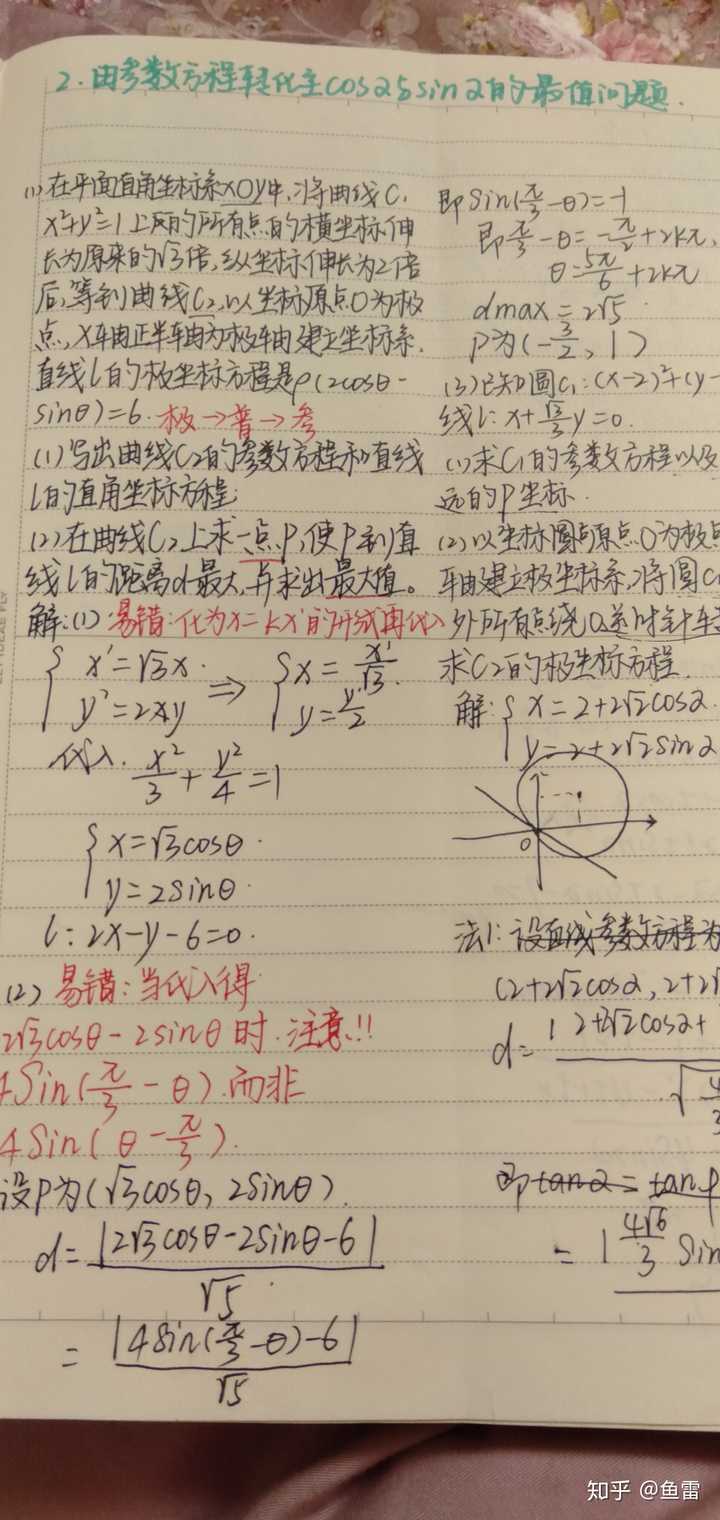 2.由参数方程转化至cosα与sinα的最值问题.
(1)在平面直角坐标系xOy中,将曲线C₁
x²+y²=1上反的所有点的横坐标伸
长为原来的√3倍,纵坐标伸长为2倍
后,等到曲线C₂,以坐标原点O为极
点,X轴正半轴为极轴建立坐标系.
直线l的极坐标方程是ρ(2cosθ-
sinθ)=6.极→普→参
(1)写出曲线C₂的参数方程和直线
l的直角坐标方程
(2)在曲线C₂上求一点P,使P到直
线l的距离d最大,并求出最大值。
解:(1)易错:化为x=kx'的形式再代入
{ x'=√3x.
y'=2xy
⇒ { x=x'/√3.
y=y'/2
代入. x²/3+y²/4=1
{ x=√3cosθ.
y=2sinθ.
l:2x-y-6=0.
(2)易错:当代入得
2√3cosθ-2sinθ时.注意!!
4Sin(π/3-θ).而非
4Sin(θ-π/3).
设P为(√3cosθ,2sinθ).
d=|2√3cosθ-2sinθ-6|/√5.
=|4Sin(π/3-θ)-6|/√5
即Sin(π/3-θ)=-1
即π/3-θ=-π/2+2kπ,
θ=5π/6+2kπ
dmax=2√5.
P为(-3/2,1)
(3)已知圆C₁:(x-2)²+(y-
线l:x+√3/3y=0.
(1)求C₁的参数方程以及
远的P坐标.
(2)以坐标圆点原点O为极点
轴建立极坐标系,将圆C₁
外所有点绕O逆时针车
求C₂的极坐标方程.
解:{ x=2+2√2cosα.
y=2+2√2sinα
O
法1:设直线参数方程为
(2+2√2cosα,2+2√
d=|2+2√2cosα+
√4/3
即tanα=tanφ
=|4√6/3 Sin
知乎 @鱼雷